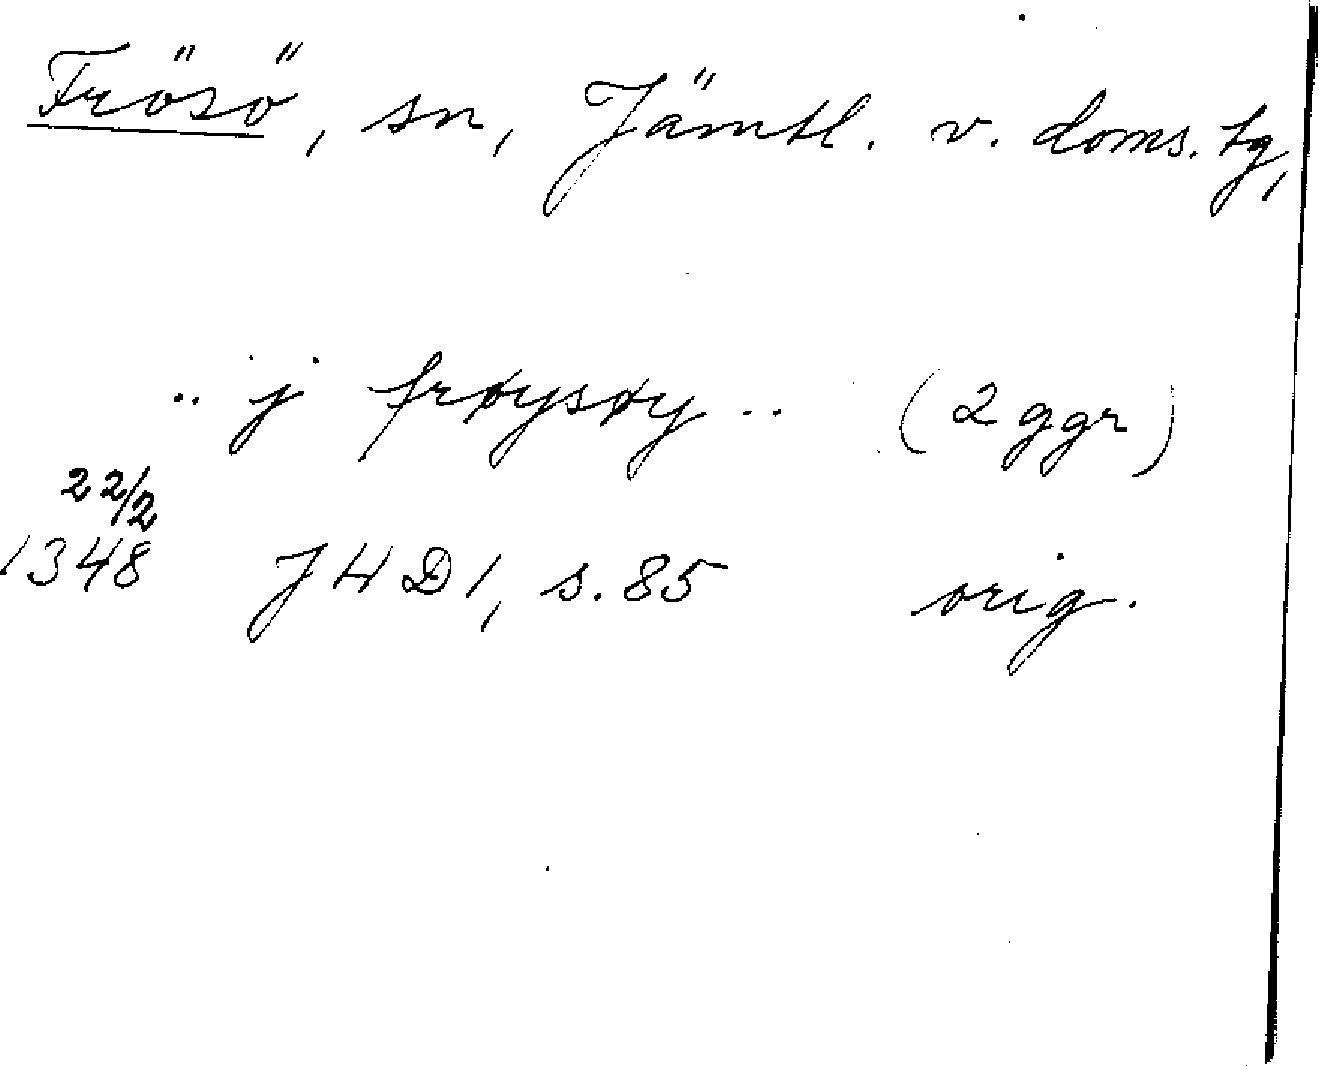 Frösö, sn, Jämtl. v. doms. tg,
.. j frøysøy .. (2 ggr)
22/2
1348 J H D 1, s. 85 orig.